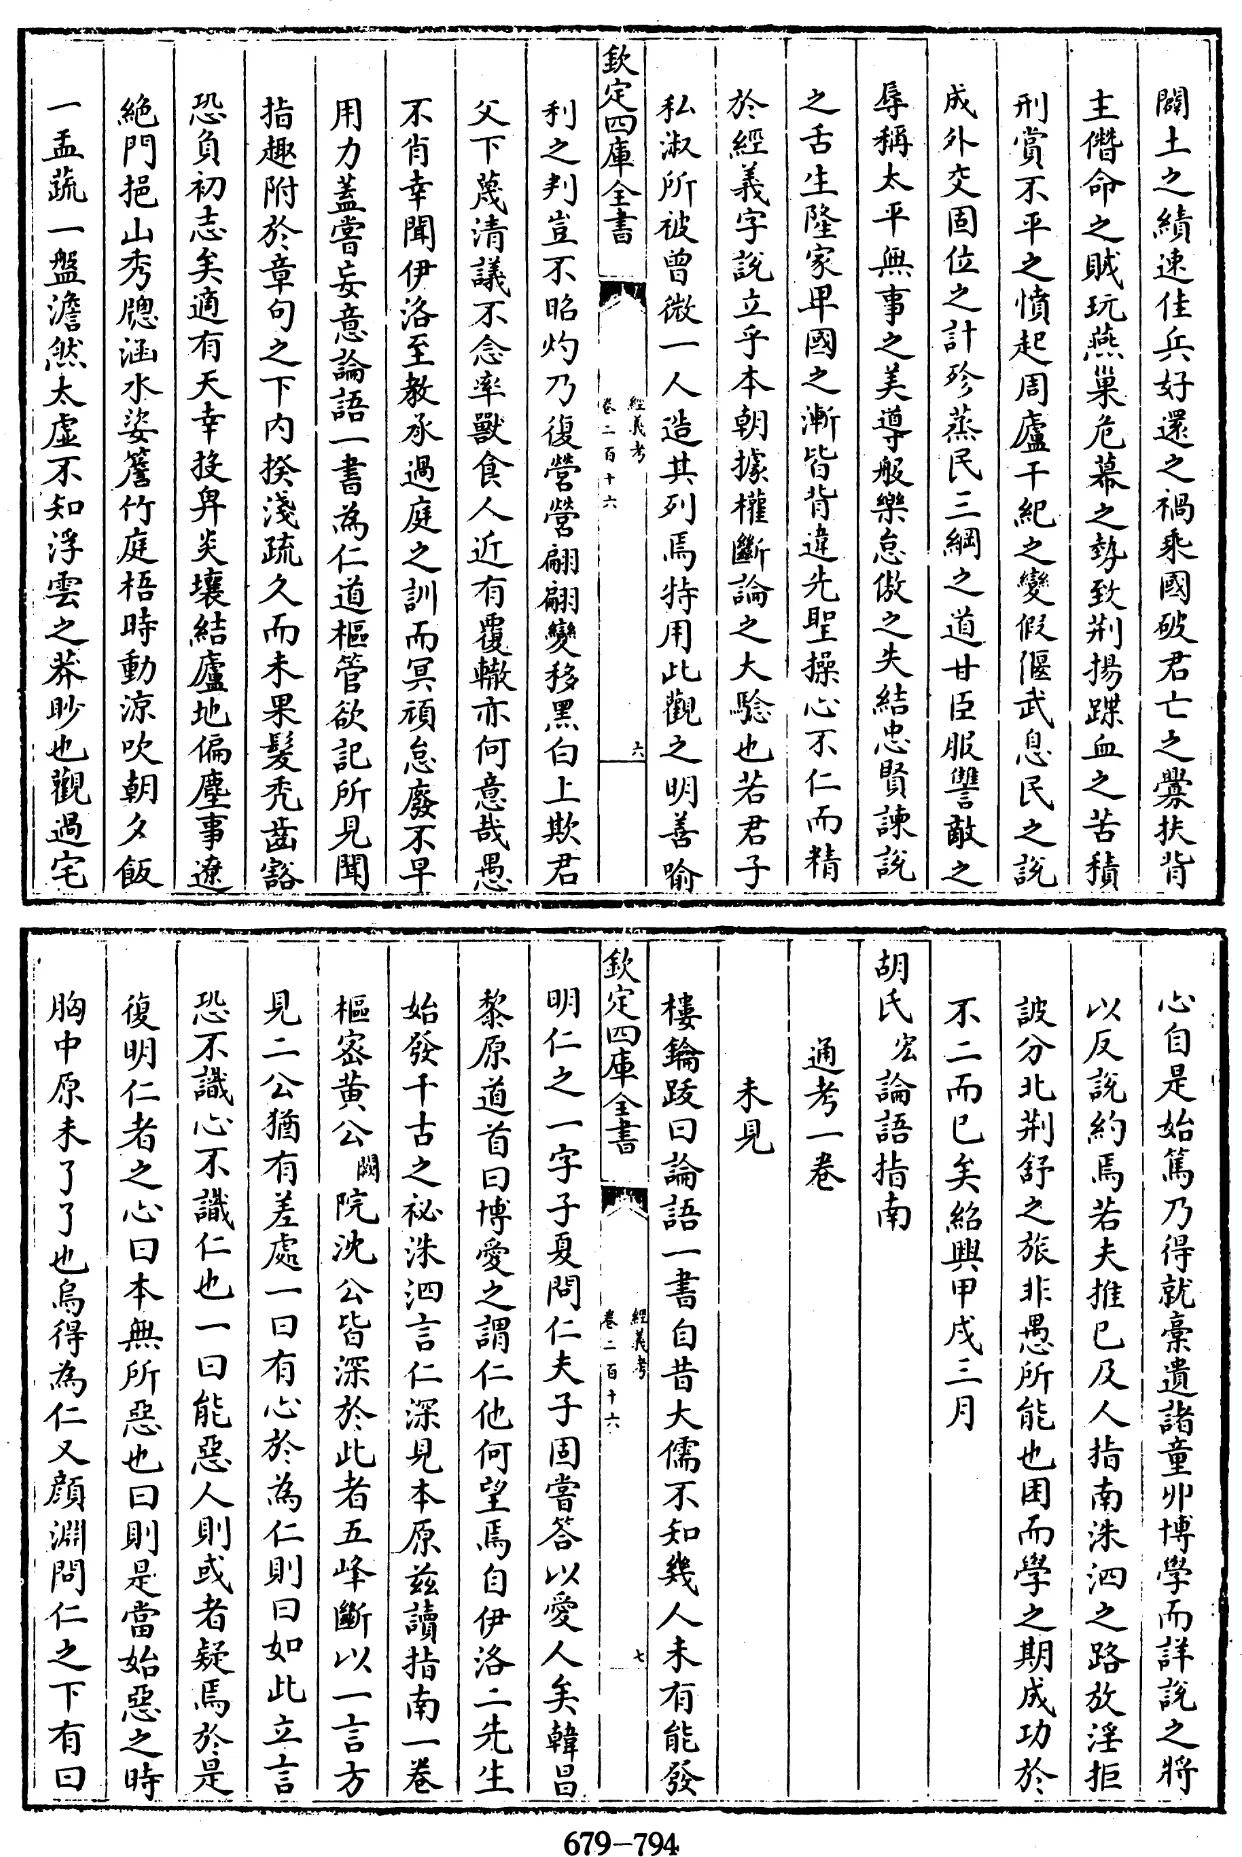 闢土之績速佳兵好還之禍乘國破君亡之釁扶背
主僭命之賊玩燕巢危幕之勢致荆揚蹀血之苦積
刑賞不平之憤起周廬干紀之變假偃武息民之說
成外交固位之計殄蒸民三綱之道甘臣服讐敵之
辱稱太平無事之美導般樂怠傲之失結忠賢諫說
之舌生陸家卑國之漸皆背違先聖操心不仁而精
於經義字說立乎本朝據權斷論之大驗也若君子
私淑所被曾微一人造其列焉特用此觀之明善喻
欽定四庫全書
經義考
卷二百十六
六
利之判豈不昭灼乃復營營翩翩變移黑白上欺君
父下蔑清議不念率獸食人近有覆轍亦何意哉愚
不肖幸聞伊洛至教承過庭之訓而冥頑怠廢不早
用力蓋嘗妄意論語一書為仁道樞管欲記所見聞
指趣附於章句之下内揆淺疏久而未果髮秃齒豁
恐負初志矣適有天幸投畀炎壤結廬地偏塵事遼
絶門挹山秀牕涵水姿簷竹庭梧時動涼吹朝夕飯
一盂蔬一盤澹然太虛不知浮雲之莽眇也觀過宅
心自是始篤乃得就稾遺諸童丱博學而詳說之將
以反說約焉若夫推已及人指南洙泗之路放淫拒
詖分北荆舒之旅非愚所能也困而學之期成功於
不二而已矣紹興甲戌三月
胡氏宏論語指南
通考一卷
未見
樓鑰跋曰論語一書自昔大儒不知幾人未有能發
欽定四庫全書
經義考
卷二百十六
七
明仁之一字子夏問仁夫子固嘗答以愛人矣韓昌
黎原道首曰博愛之謂仁他何望焉自伊洛二先生
始發千古之祕洙泗言仁深見本原兹讀指南一卷
樞密黄公闕院沈公皆深於此者五峰斷以一言方
見二公猶有差處一曰有心於為仁則曰如此立言
恐不識心不識仁也一曰能惡人則或者疑焉於是
復明仁者之心曰本無所惡也曰則是當始惡之時
胸中原未了了也烏得為仁又顔淵問仁之下有曰
679-794